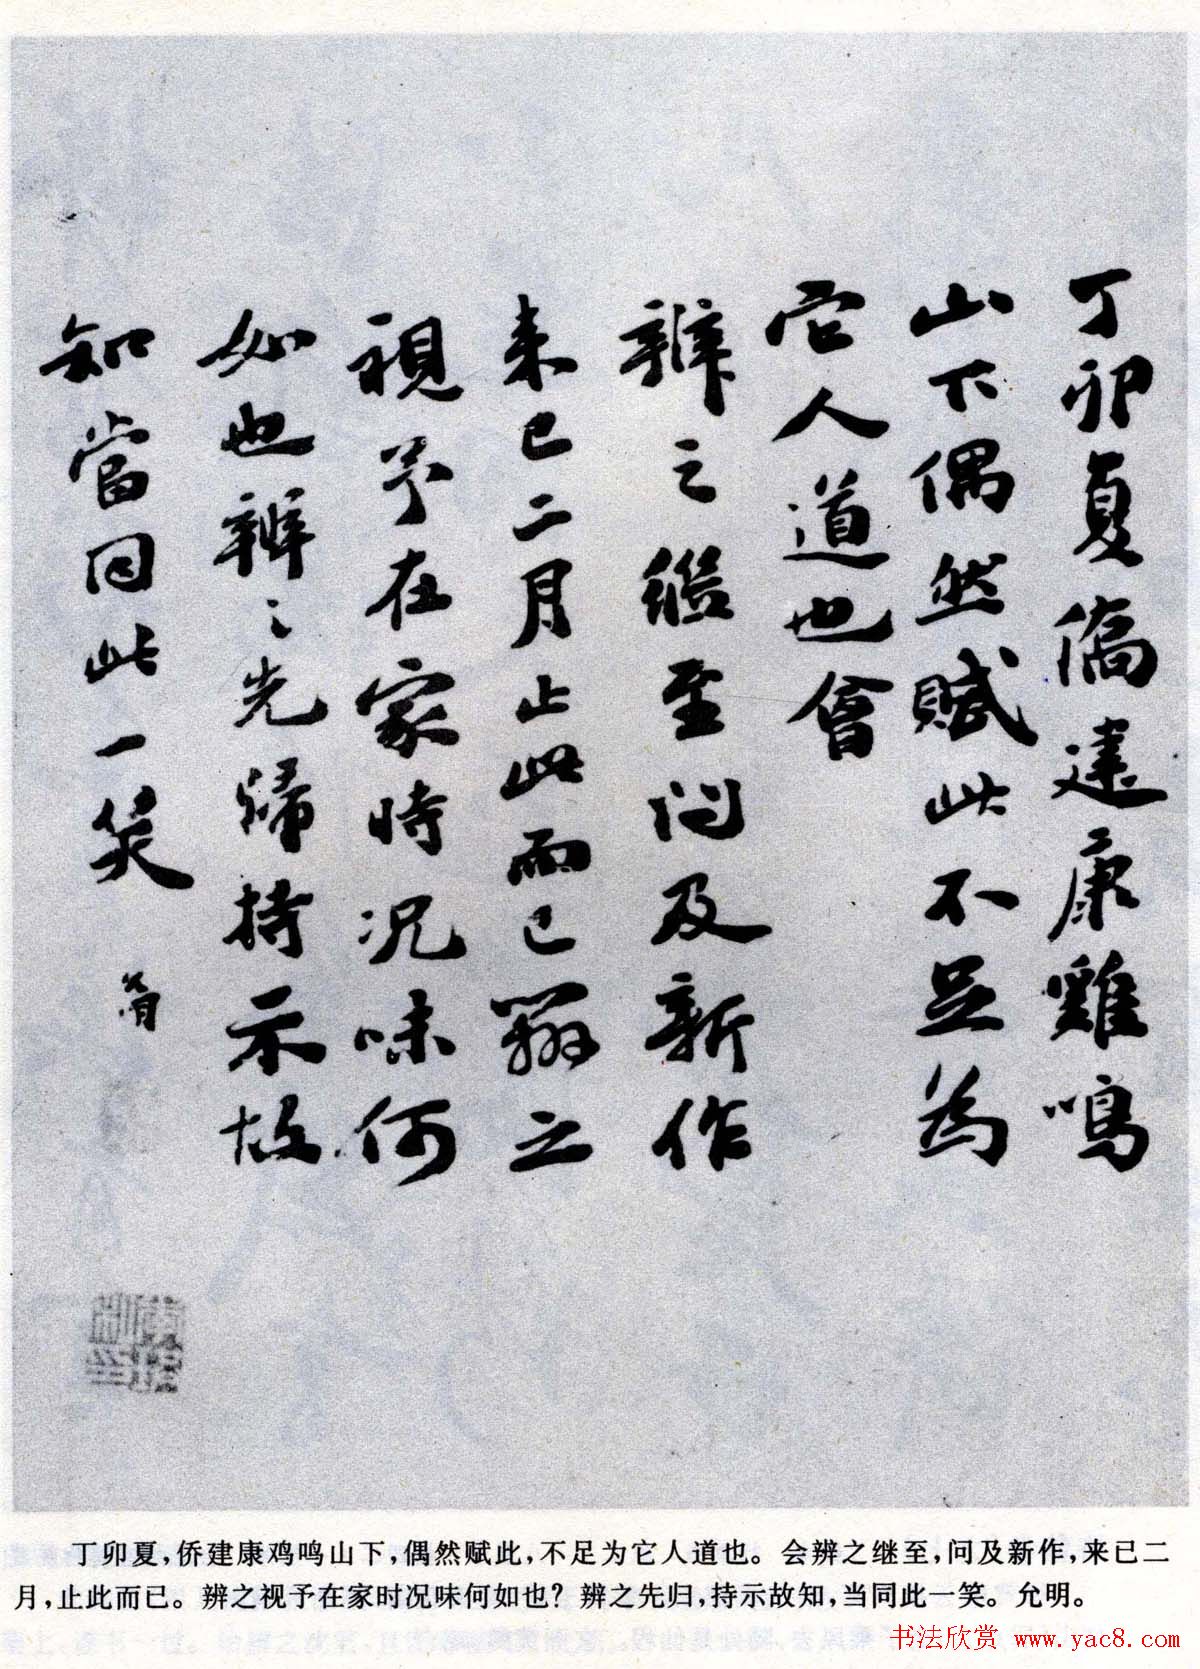 丁卯夏僑建康雞鳴
山下偶然賦此不足為
它人道也會
辨之繼至問及新作
来已二月止此而已辨之
視予在家時況味何
如也辨之先歸持示故
知當同此一笑
丁卯夏,侨建康鸡鸣山下,偶然赋此,不足为它人道也。会辨之继至,问及新作,来已二
月,止此而已。辨之视予在家时况味何如也?辨之先归,持示故知,当同此一笑。允明。
书法欣赏 www.yac8.com